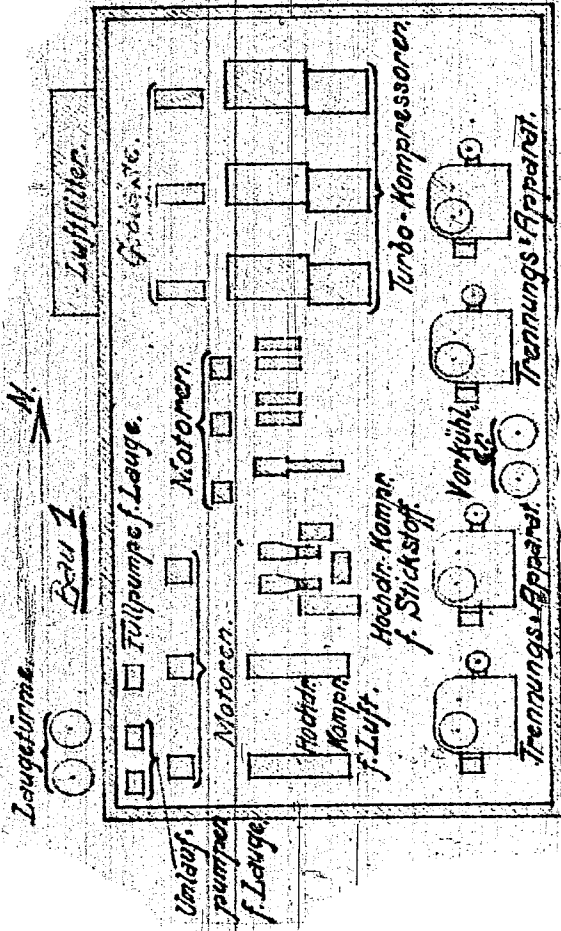 Laugetürme.
Bau 1
N.
Luftfilter.
Füllpumpe f. Lauge.
Umlauf-
pumpen
f. Lauge.
Motoren.
Motoren.
Hochdr.
Kompr.
f. Luft.
Hochdr. Kompr.
f. Stickstoff.
Turbo-Kompressoren.
Vorkühl
er.
Trennungs-Apparat.
Trennungs-Apparat.